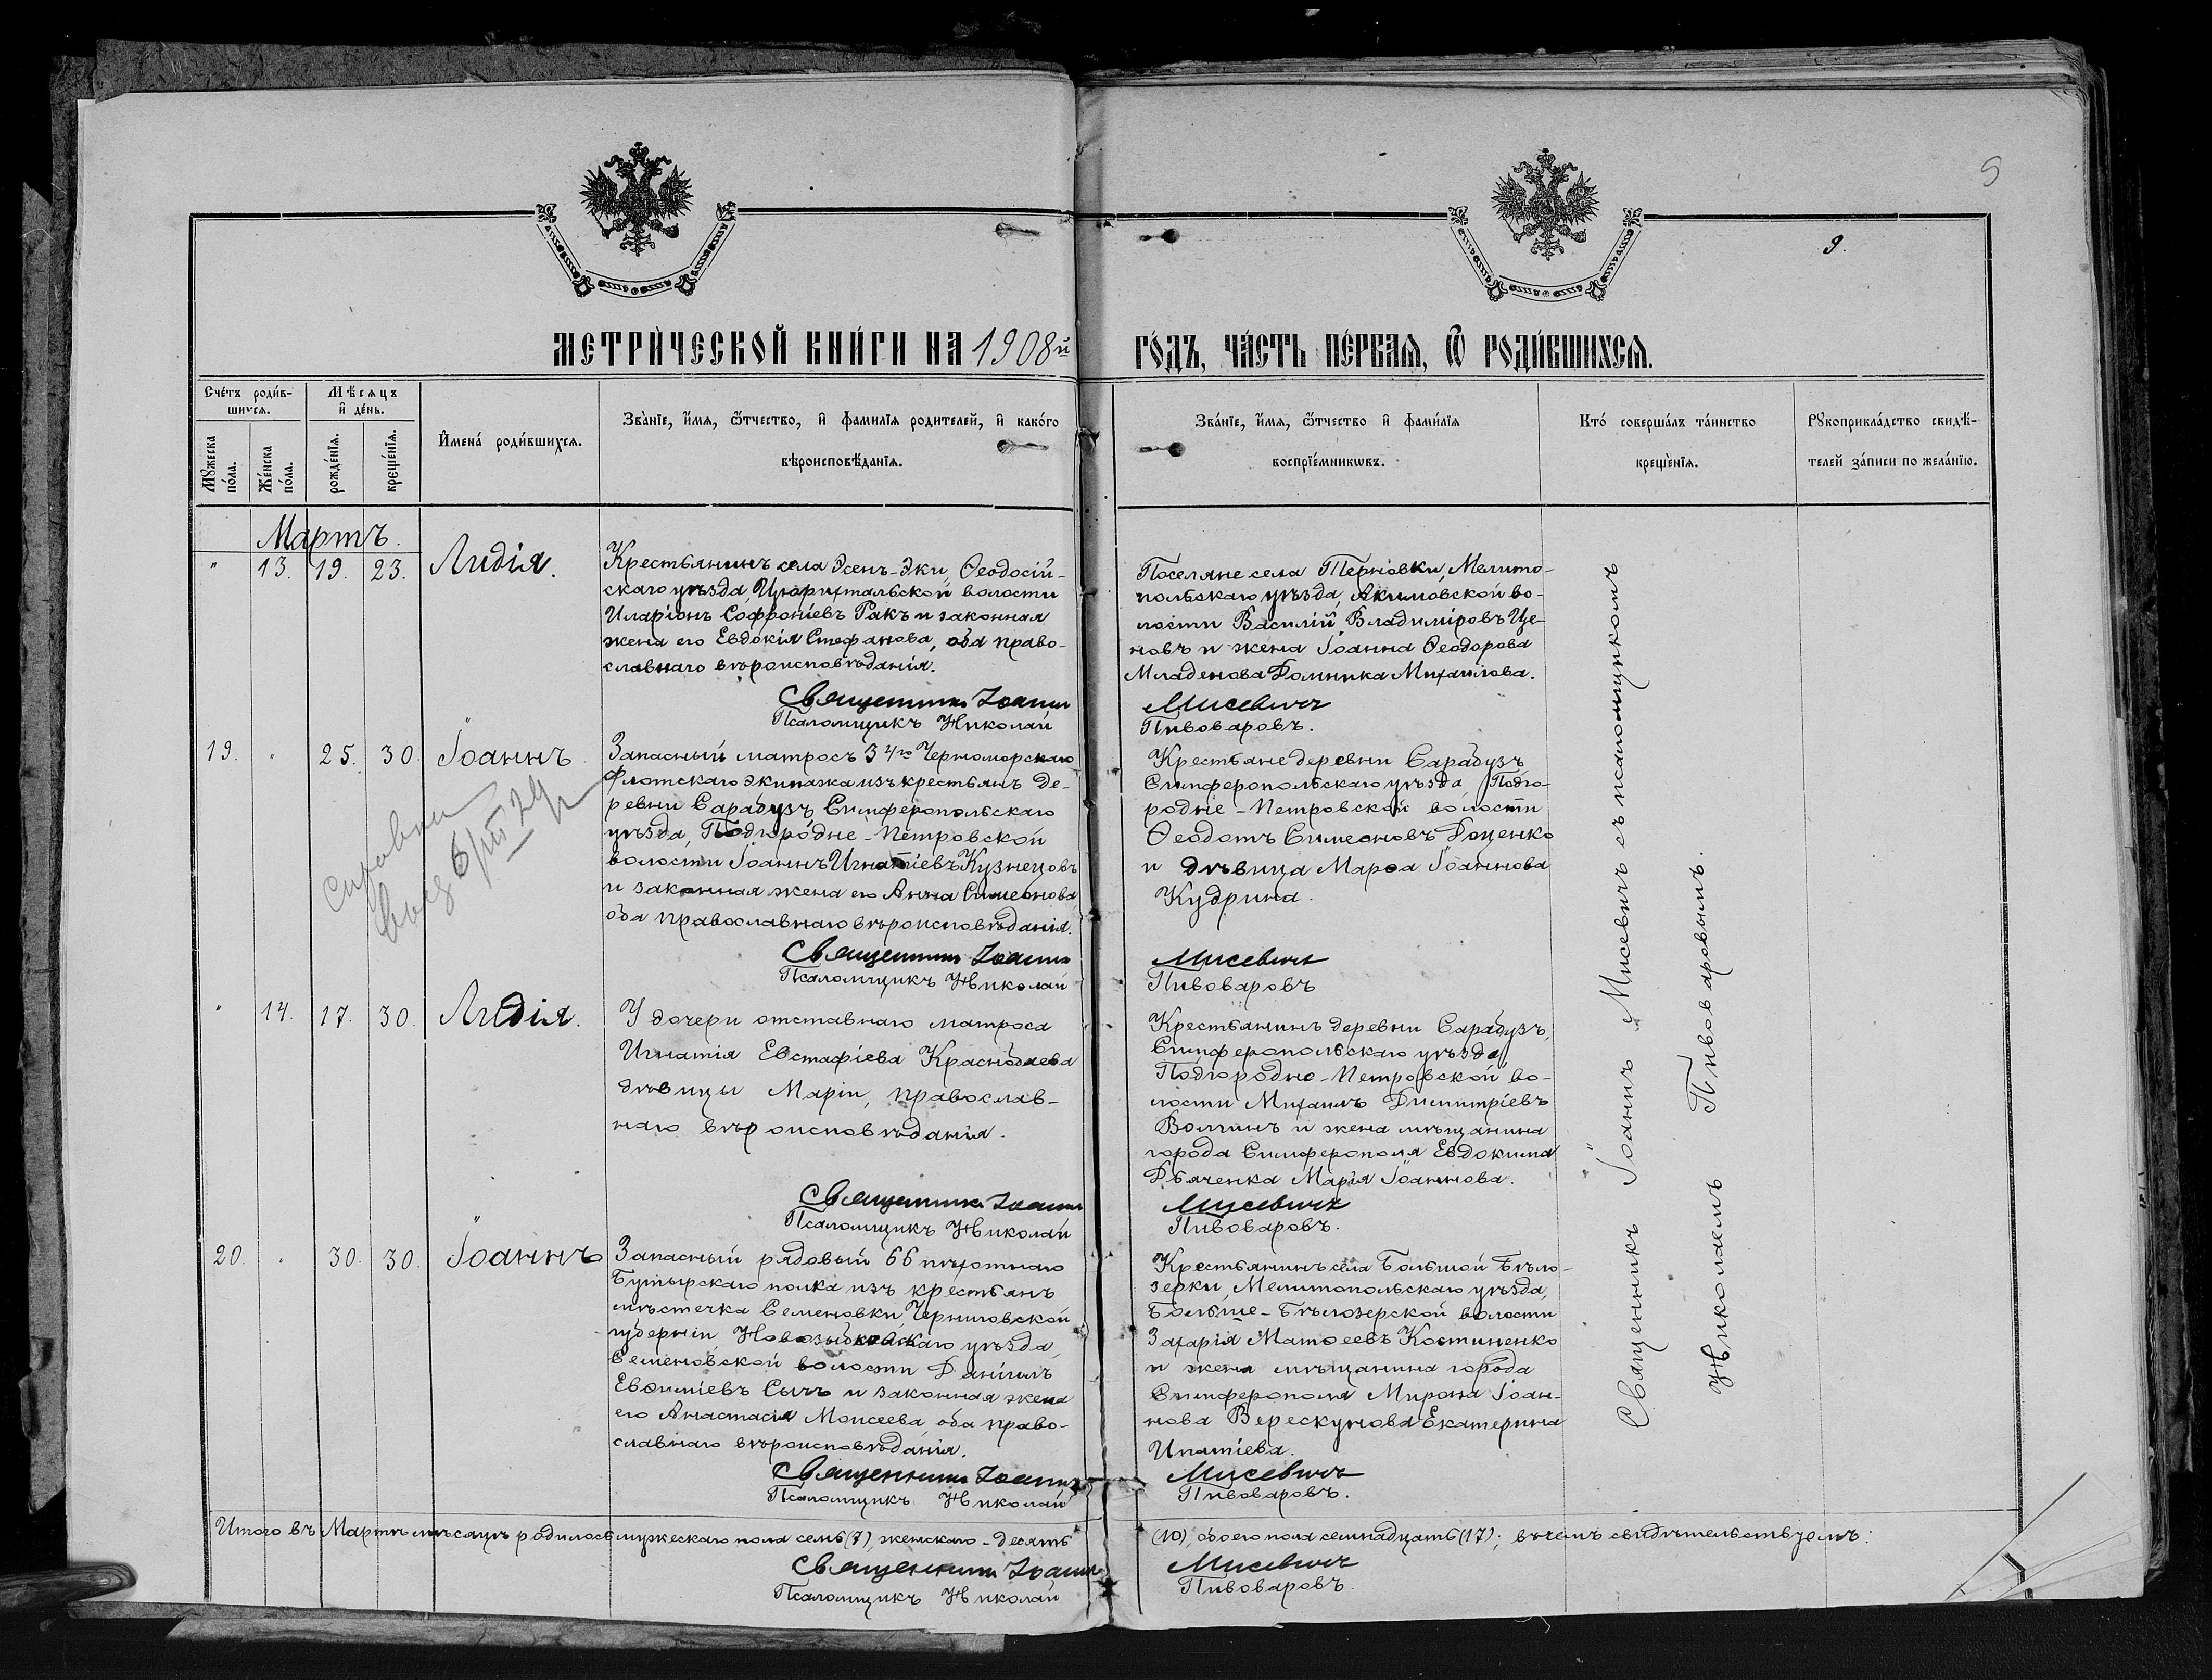 9
9.
МЕТРИЧЕСКОЙ КНИГИ НА 1908й ГОДЪ, ЧАСТЬ ПЕРВАЯ, Ѡ РОДИВШИХСЯ.
Счетъ родив-
шихся.
Мѹжеска
пола.
Женска
пола.
Мѣсяцъ
и день.
рожденія.
крещенія.
Имена родившихся.
Званіе, имя, ѿчество, и фамилія родителей, и какого
вѣроисповѣданія.
Званіе, имя, ѿчество и фамилія
воспріемникѡвъ.
Кто совершалъ таинство
крещенія.
Рѹкоприкладство свидѣ-
телей записи по желанію.
Мартъ.
" 13. 19. 23. Лидія.
Крестьянинъ села Эсенъ-Эки, Ѳеодосій-
скаго уѣзда, Цюрихтальской волости
Иларіонъ Софроніевъ Ракъ и законная
жена его Евдокія Стефанова, оба право-
славнаго вѣроисповѣданія.
Поселяне села Терновки, Мелито-
польскаго уѣзда, Акимовской во-
лости Василій Владиміровъ Це-
новъ и жена Іоанна Ѳеодорова
Младенова Домника Михаилова.
Священникъ Іоаннъ Мисевичъ
Псаломщикъ Николай Пивоваровъ.
19. " 25. 30. Іоаннъ
Запасный матросъ 34го Черноморскаго
Флотскаго экипажа изъ крестьянъ де-
ревни Сарабузъ Симферопольскаго
уѣзда, Подгородне-Петровской
волости Іоаннъ Игнатіевъ Кузнецовъ
и законная жена его Анна Симеонова,
оба православнаго вѣроисповѣданія.
Крестьяне деревни Сарабузъ
Симферопольскаго уѣзда Подго-
родне-Петровской волости
Ѳеодотъ Симеоновъ Доценко
и дѣвица Марѳа Іоаннова
Кудрина.
справки
6/III 29
Священникъ Іоаннъ Мисевичъ
Псаломщикъ Николай Пивоваровъ
" 14. 17. 30. Лидія.
У дочери отставнаго матроса
Игнатія Евстафіева Краснобаева
дѣвицы Маріи, православ-
наго вѣроисповѣданія.
Крестьянинъ деревни Сарабузъ,
Симферопольскаго уѣзда,
Подгородно-Петровской во-
лости Михаилъ Димитріевъ
Волчинъ и жена мѣщанина
города Симферополя Евдокима
Дьяченка Марія Іоаннова.
Священникъ Іоаннъ Мисевичъ
Псаломщикъ Николай Пивоваровъ.
20. " 30. 30. Іоаннъ
Запасный рядовый 66 пѣхотнаго
Бутырскаго полка изъ крестьянъ
мѣстечка Семеновки, Черниговской
губерніи Новозыбковскаго уѣзда,
Семеновской волости Даніилъ
Евѳиміевъ Сычъ и законная жена
его Анастасія Моисеева, оба право-
славнаго вѣроисповѣданія.
Крестьянинъ села Большой Бѣло-
зерки, Мелитопольскаго уѣзда,
Больше-Бѣлозерской волости
Захарія Матѳеевъ Костиненко
и жена мѣщанина города
Симферополя Мирона Іоан-
нова Верескунова Екатерина
Ипатіева.
Священникъ Іоаннъ Мисевичъ
Псаломщикъ Николай Пивоваровъ.
Священникъ Іоаннъ Мисевичъ съ псаломщикомъ
Николаемъ Пивоваровымъ.
Итого въ Мартѣ мѣсяцѣ родилось мужескаго пола семь (7), женскаго - десять (10), обоего пола семнадцать (17); въ чемъ свидѣтельствуемъ:
Священникъ Іоаннъ Мисевичъ
Псаломщикъ Николай Пивоваровъ.